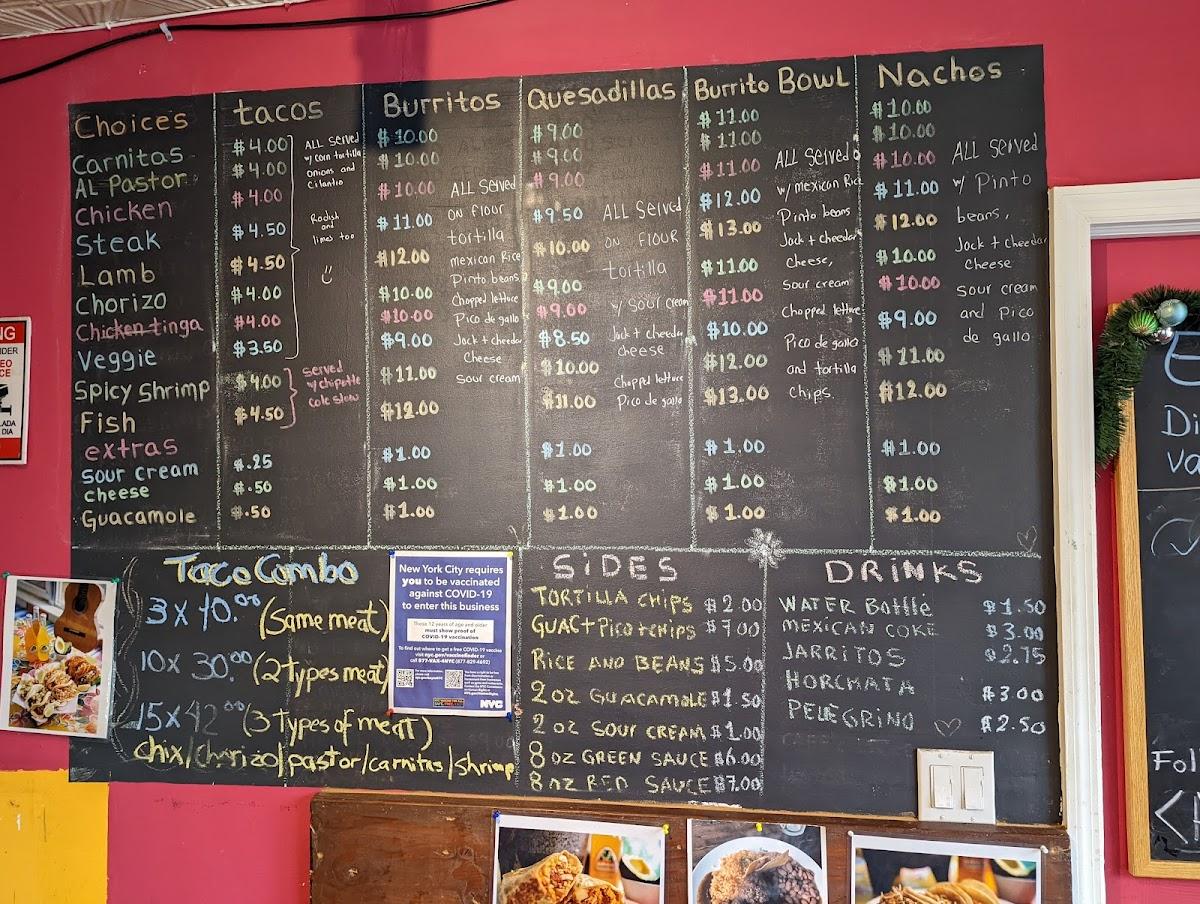 Choices
Carnitas
AL Pastor
Chicken
Steak
Lamb
Chorizo
Chicken tinga
Veggie
Spicy Shrimp
Fish
extras
sour cream
cheese
Guacamole
tacos
$4.00
$4.00
$4.00
$4.50
$4.50
$4.00
$4.00
$3.50
$4.00
$4.50
$.25
$.50
$.50
ALL Served
w/ corn tortilla
Onions and
Cilantro
Radish
and
limes too
served
w/chipotle
cole slow
Burritos
$10.00
$10.00
$10.00
$11.00
$12.00
$10.00
$10.00
$9.00
$11.00
$12.00
$1.00
$1.00
$1.00
ALL Served
on flour
tortilla
mexican Rice
Pinto beans
Chopped lettuce
Pico de gallo
Jack + cheedar
Cheese
sour cream
Quesadillas
$9.00
$9.00
$9.00
$9.50
$10.00
$9.00
$9.00
$8.50
$10.00
$11.00
$1.00
$1.00
$1.00
ALL Served
on flour
tortilla
w/ sour cream
Jack + cheedar
cheese
Chopped lettuce
Pico de gallo
Burrito Bowl
$11.00
$11.00
$11.00
$12.00
$13.00
$11.00
$11.00
$10.00
$12.00
$13.00
$1.00
$1.00
$1.00
ALL Served
w/ mexican Rice
Pinto beans
Jack + cheedar
cheese,
sour cream
chopped lettuce
Pico de gallo
and tortilla
chips.
Nachos
$10.00
$10.00
$10.00
$11.00
$12.00
$10.00
$10.00
$9.00
$11.00
$12.00
$1.00
$1.00
$1.00
ALL Served
w/ Pinto
beans,
Jack + cheedar
Cheese
sour cream
and pico
de gallo
Taco Combo
3 x 10.00 (Same meat)
10x 30.00 (2 types meat)
15x42.00 (3 types of meat)
chix/chorizo/pastor/carnitas/shrimp
New York City requires
you to be vaccinated
against COVID-19
to enter this business
Those 12 years of age and older
must show proof of
COVID-19 vaccination
To find out where to get a free COVID-19 vaccine
visit nyc.gov/vaccinefinder or
call 877-VAX-4NYC (877-829-4692)
NYC
SIDES
TORTILLA CHIPS $2.00
GUAC+PICO+CHIPS $7.00
RICE AND BEANS $5.00
2 OZ GUACAMOLE $1.50
2 OZ SOUR CREAM $1.00
8 OZ GREEN SAUCE $6.00
8 OZ RED SAUCE $7.00
DRINKS
WATER Bottle $1.50
MEXICAN COKE $3.00
JARRITOS $2.75
HORCHATA $3.00
PELEGRINO $2.50
Di
Va
Fol